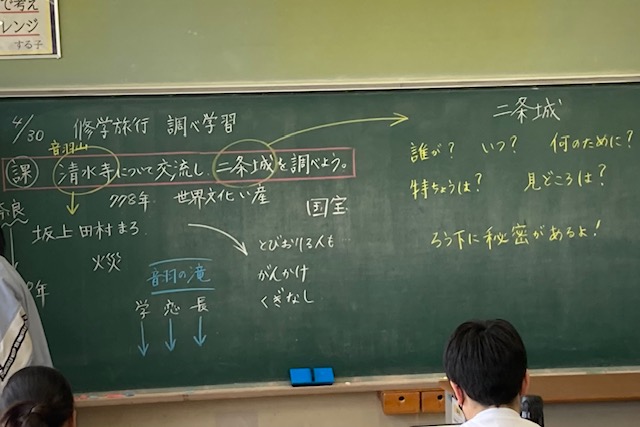 で考え
レンジ
する子
4/30 修学旅行 調べ学習
音羽山
課 清水寺について交流し、二条城を調べよう。
778年 世界文化い産
国宝
奈良
坂上田村まろ
火災
年
音羽の滝
学 恋 長
とびおりる人も
がんかけ
くぎなし
二条城
誰が? いつ? 何のために?
特ちょうは? 見どころは?
ろう下に秘密があるよ!